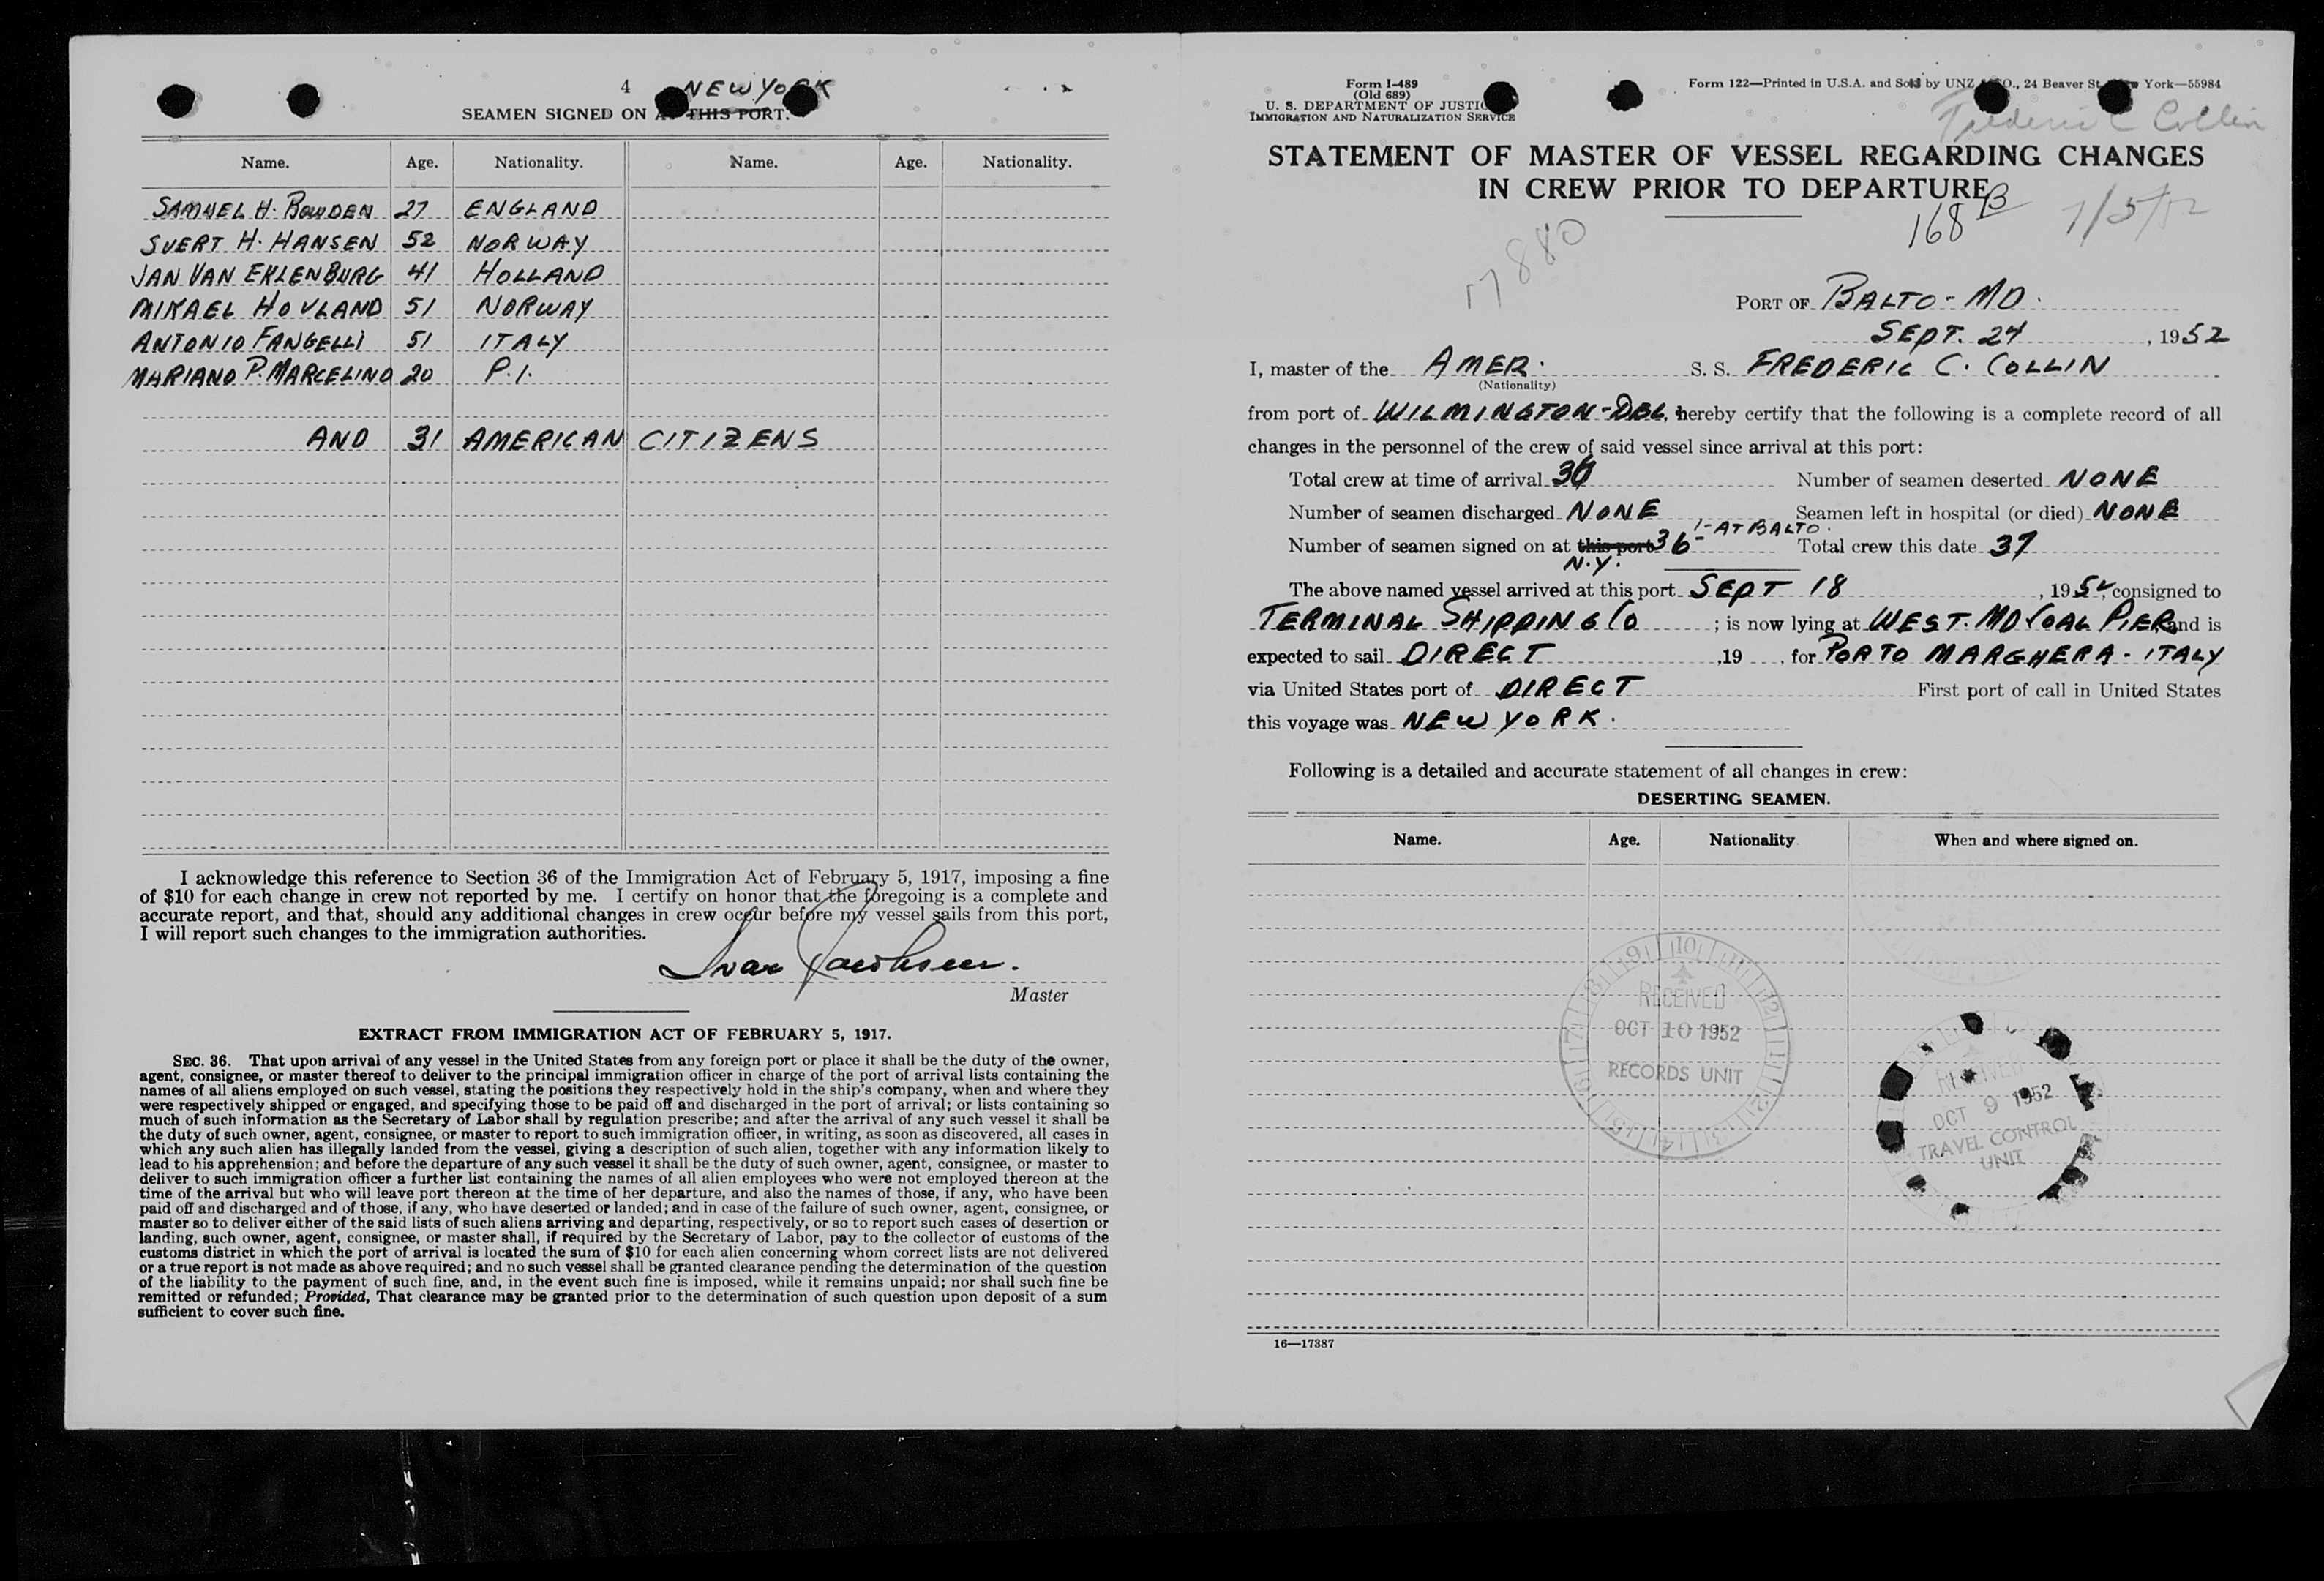 4 NEW YORK
SEAMEN SIGNED ON AT THIS PORT.
Name. Age. Nationality. Name. Age. Nationality.
SAMUEL H. BOWDEN 27 ENGLAND
SVERT H. HANSEN 52 NORWAY
JAN VAN EKLENBURG 41 HOLLAND
MIKAEL HOVLAND 51 NORWAY
ANTONIO FANGELLI 51 ITALY
MARIANO P. MARCELINO 20 P.I.
AND 31 AMERICAN CITIZENS
I acknowledge this reference to Section 36 of the Immigration Act of February 5, 1917, imposing a fine
of $10 for each change in crew not reported by me. I certify on honor that the foregoing is a complete and
accurate report, and that, should any additional changes in crew occur before my vessel sails from this port,
I will report such changes to the immigration authorities.
Ivar Jacobsen.
Master
EXTRACT FROM IMMIGRATION ACT OF FEBRUARY 5, 1917.
SEC. 36. That upon arrival of any vessel in the United States from any foreign port or place it shall be the duty of the owner,
agent, consignee, or master thereof to deliver to the principal immigration officer in charge of the port of arrival lists containing the
names of all aliens employed on such vessel, stating the positions they respectively hold in the ship's company, when and where they
were respectively shipped or engaged, and specifying those to be paid off and discharged in the port of arrival; or lists containing so
much of such information as the Secretary of Labor shall by regulation prescribe; and after the arrival of any such vessel it shall be
the duty of such owner, agent, consignee, or master to report to such immigration officer, in writing, as soon as discovered, all cases in
which any such alien has illegally landed from the vessel, giving a description of such alien, together with any information likely to
lead to his apprehension; and before the departure of any such vessel it shall be the duty of such owner, agent, consignee, or master to
deliver to such immigration officer a further list containing the names of all alien employees who were not employed thereon at the
time of the arrival but who will leave port thereon at the time of her departure, and also the names of those, if any, who have been
paid off and discharged and of those, if any, who have deserted or landed; and in case of the failure of such owner, agent, consignee, or
master so to deliver either of the said lists of such aliens arriving and departing, respectively, or so to report such cases of desertion or
landing, such owner, agent, consignee, or master shall, if required by the Secretary of Labor, pay to the collector of customs of the
customs district in which the port of arrival is located the sum of $10 for each alien concerning whom correct lists are not delivered
or a true report is not made as above required; and no such vessel shall be granted clearance pending the determination of the question
of the liability to the payment of such fine, and, in the event such fine is imposed, while it remains unpaid; nor shall such fine be
remitted or refunded; Provided, That clearance may be granted prior to the determination of such question upon deposit of a sum
sufficient to cover such fine.
Form I-489
(Old 689)
U. S. DEPARTMENT OF JUSTICE
IMMIGRATION AND NATURALIZATION SERVICE
Form 122—Printed in U.S.A. and Sold by UNZ & CO., 24 Beaver St., New York—55984
Frederic C Collin
STATEMENT OF MASTER OF VESSEL REGARDING CHANGES
IN CREW PRIOR TO DEPARTURE
168 B
17880
PORT OF BALTO - MD.
SEPT. 24, 1952
I, master of the AMER. S. S. FREDERIC C. COLLIN
(Nationality)
from port of WILMINGTON-DEL, hereby certify that the following is a complete record of all
changes in the personnel of the crew of said vessel since arrival at this port:
Total crew at time of arrival 36 Number of seamen deserted NONE
Number of seamen discharged NONE Seamen left in hospital (or died) NONE
Number of seamen signed on at this port 36 - 1- AT BALTO. Total crew this date 37
N.Y.
The above named vessel arrived at this port SEPT 18, 1952, consigned to
TERMINAL SHIPPING CO; is now lying at WEST. MD COAL PIER, and is
expected to sail DIRECT, 19 , for PORTO MARGHERA - ITALY
via United States port of DIRECT First port of call in United States
this voyage was NEW YORK.
Following is a detailed and accurate statement of all changes in crew:
DESERTING SEAMEN.
Name. Age. Nationality When and where signed on.
RECEIVED
OCT 10 1952
RECORDS UNIT
RECEIVED
OCT 9 1952
TRAVEL CONTROL
UNIT
16—17387